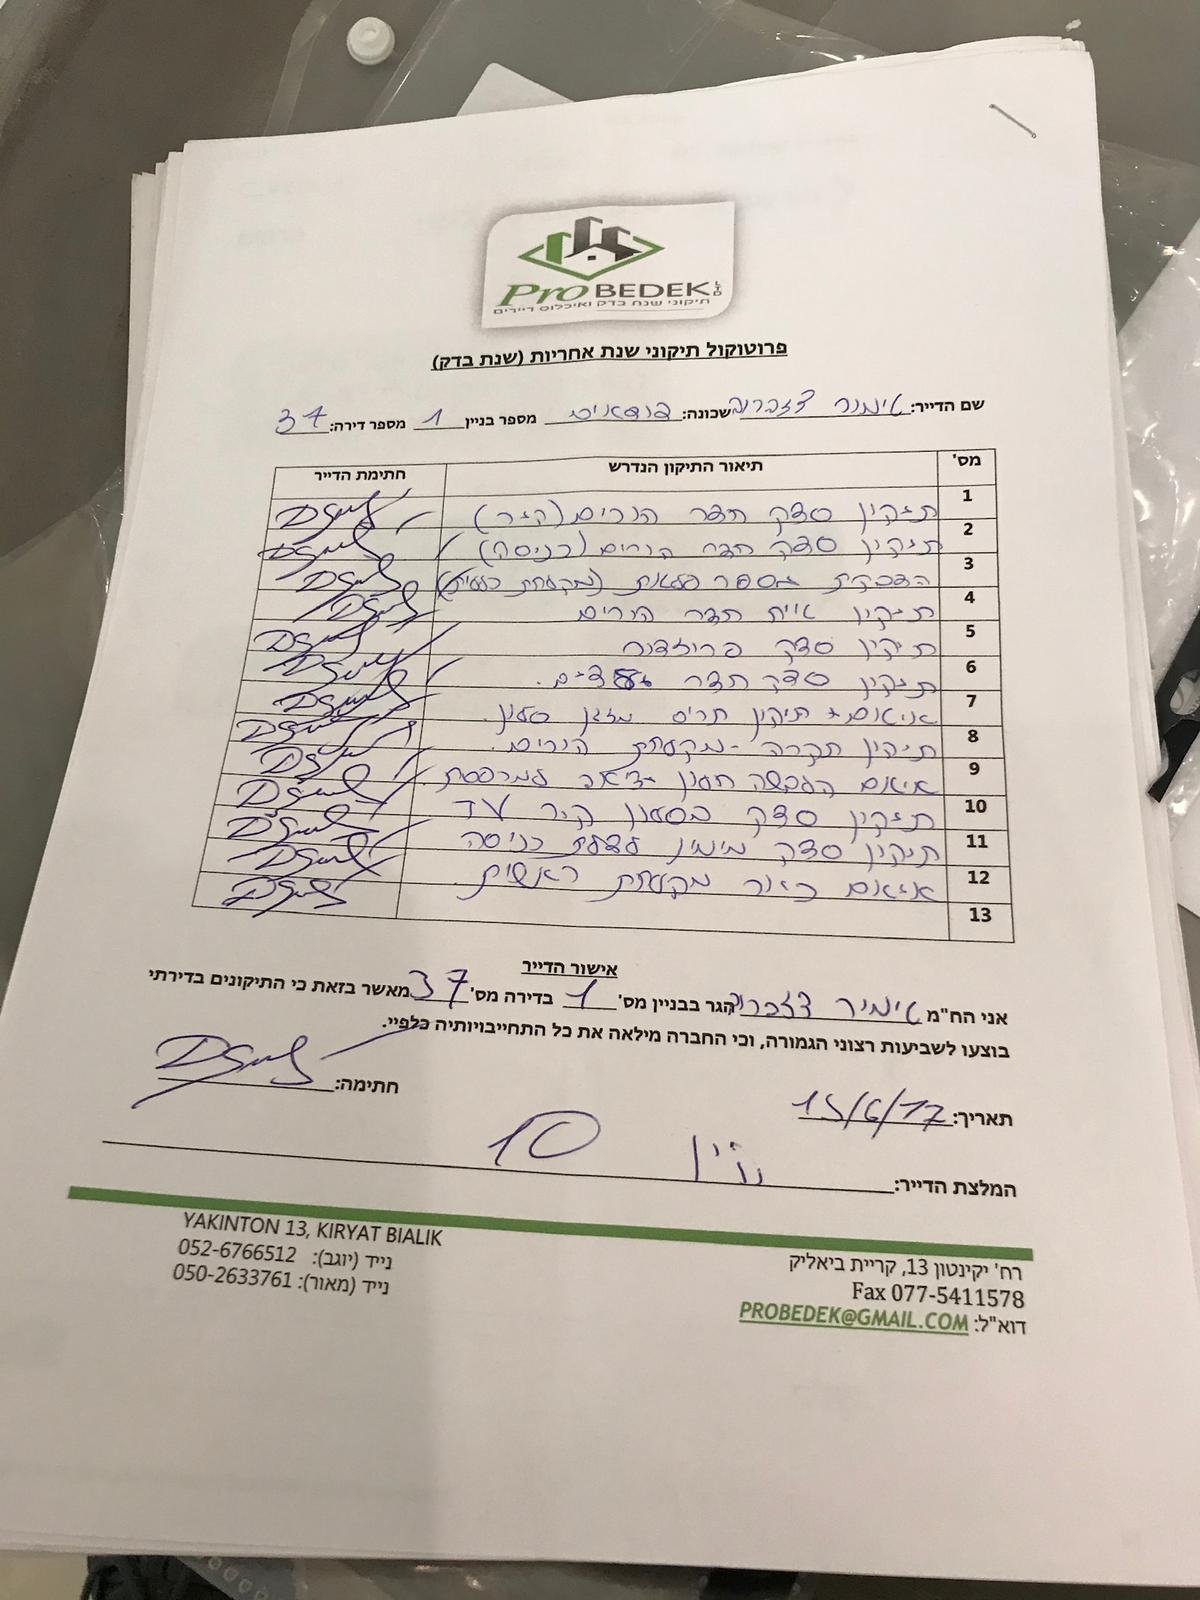 Pro BEDEK LTD
תיקוני שנת בדק ואיכלוס דיירים
פרוטוקול תיקוני שנת אחריות (שנת בדק)
שם הדייר: שכונה: מספר בניין 1 מספר דירה: 37
מס' תיאור התיקון הנדרש חתימת הדייר
1 תיקון סדק חדר הורים (קיר)
2 תיקון סדק חדר הורים (כניסה)
3 הדבקת מספר פלאות (מקלחת כללית)
4 תיקון חדר הורים
5 תיקון סדק פרוזדור
6 תיקון סדק חדר
7 איטום + תיקון תריס מזגן סלון
8 תיקון תקרה - מקלחת הורים.
9 איטום הלבשה חלון יציאה למרפסת
10 תיקון סדק בסלון קיר עד
11 תיקון סדק מימין לדלת כניסה
12 איטום כיור מקלחת ראשית
13
אישור הדייר
אני הח"מ הגר בבניין מס' 1 בדירה מס' 37 מאשר בזאת כי התיקונים בדירתי
בוצעו לשביעות רצוני הגמורה, וכי החברה מילאה את כל התחייבויותיה כלפיי.
תאריך: 15/6/17 חתימה:
המלצת הדייר: 10
רח' יקינטון 13, קריית ביאליק
Fax 077-5411578
דוא"ל: PROBEDEK@GMAIL.COM
YAKINTON 13, KIRYAT BIALIK
נייד (יוגב): 052-6766512
נייד (מאור): 050-2633761